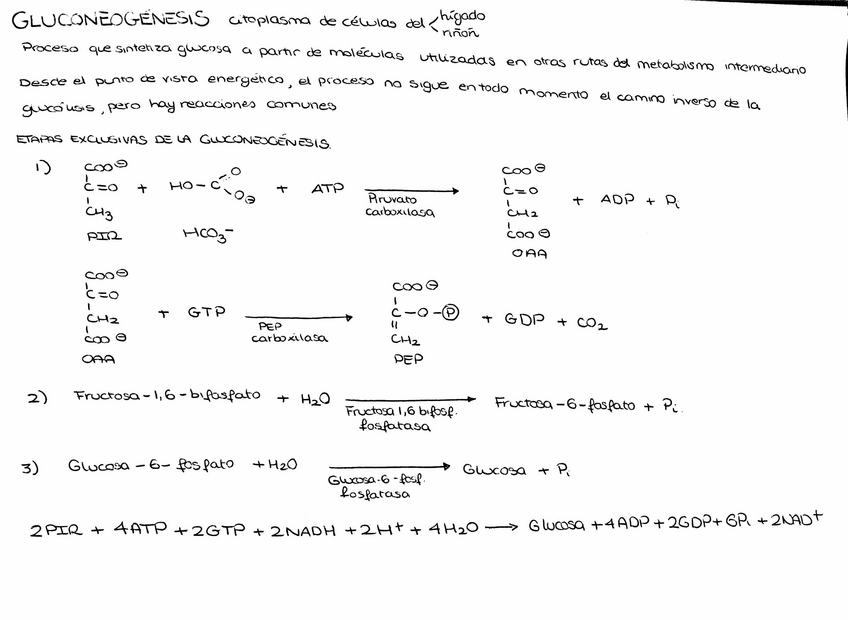 GLUCONEOGÉNESIS citoplasma de células del < hígado
riñón
Proceso que sintetiza glucosa a partir de moléculas utilizadas en otras rutas del metabolismo intermediario
Desde el punto de vista energético, el proceso no sigue en todo momento el camino inverso de la
glucólisis, pero hay reacciones comunes
ETAPAS EXCLUSIVAS DE LA GLUCONEOGÉNESIS.
1) COO⊖ O COO⊖
C=O + HO-C + ATP → C=O + ADP + Pi
CH3 O⊖ Piruvato carboxilasa CH2
PIR HCO3⁻ COO⊖
OAA
COO⊖ COO⊖
C=O C-O-Ⓟ
CH2 + GTP → + GDP + CO2
COO⊖ PEP carboxilasa CH2
OAA PEP
2) Fructosa-1,6-bifosfato + H2O → Fructosa-6-fosfato + Pi.
Fructosa 1,6 bifosf.
fosfatasa
3) Glucosa-6-fosfato + H2O → Glucosa + Pi
Glucosa-6-fosf.
fosfatasa
2PIR + 4ATP + 2GTP + 2NADH + 2H⁺ + 4H2O → Glucosa + 4ADP + 2GDP + 6Pi + 2NAD⁺